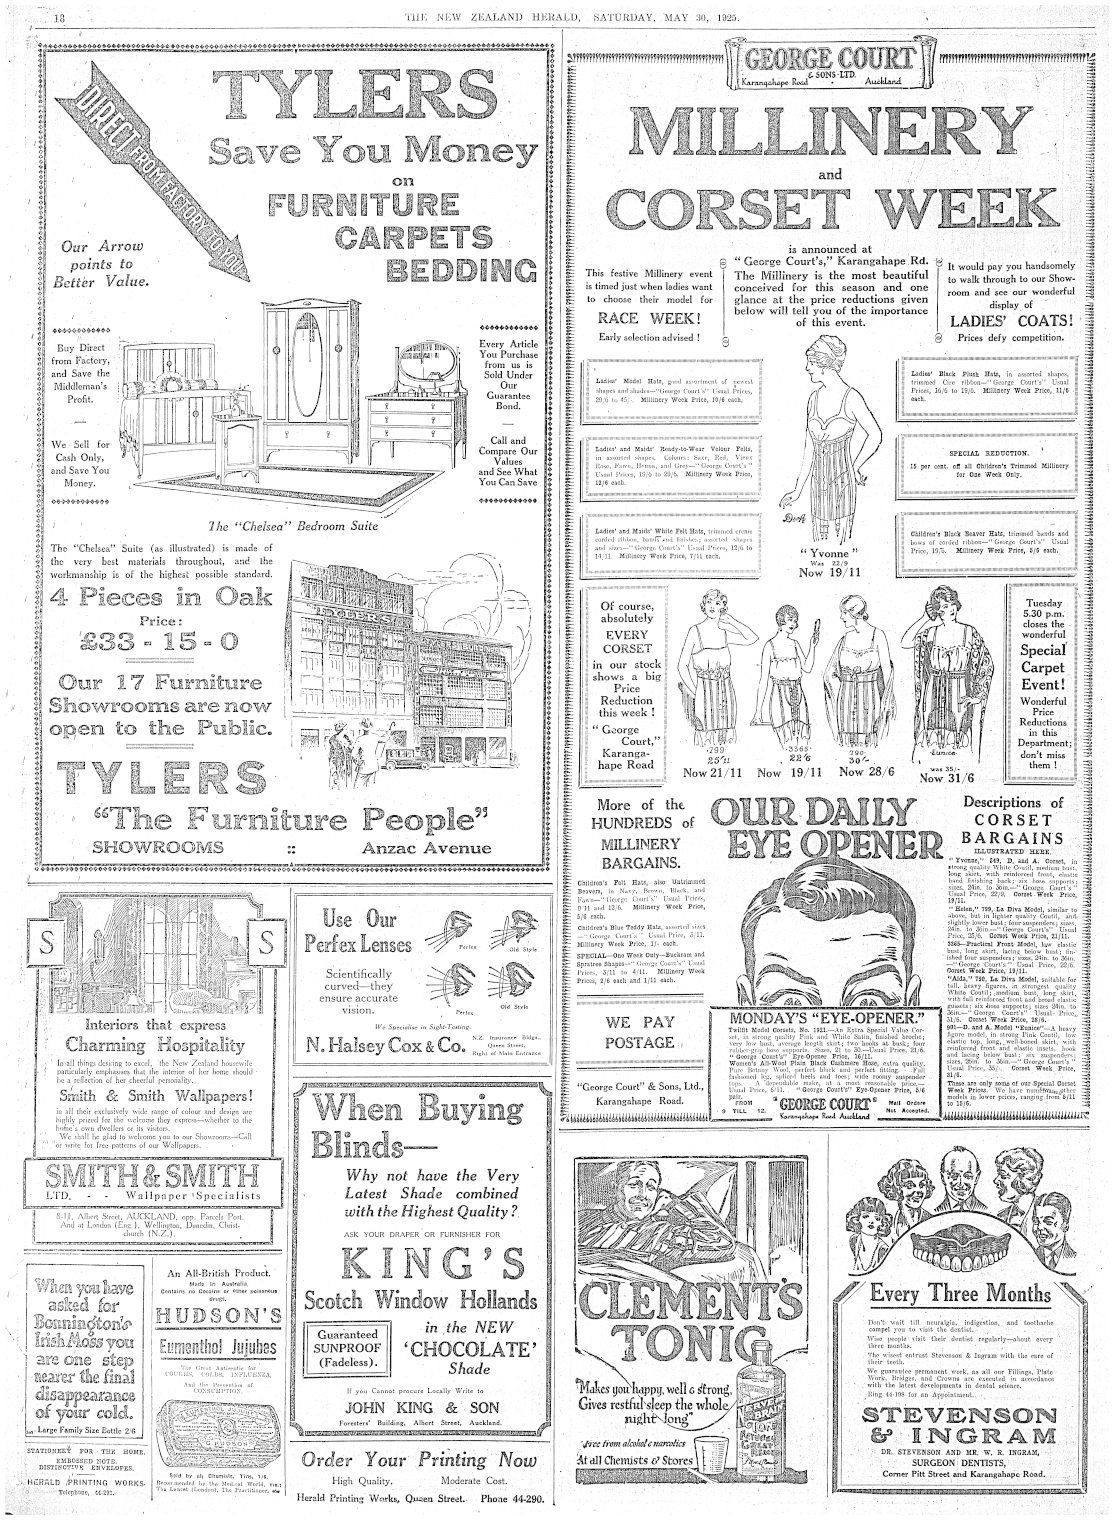 18
THE NEW ZEALAND HERALD, SATURDAY, MAY 30, 1925.
DIRECT FROM FACTORY TO YOU
TYLERS
Save You Money
on
FURNITURE
CARPETS
BEDDING
Our Arrow
points to
Better Value.
Buy Direct
from Factory,
and Save the
Middleman's
Profit.
We Sell for
Cash Only,
and Save You
Money.
Every Article
You Purchase
from us is
Sold Under
Our
Guarantee
Bond.
Call and
Compare Our
Values
and See What
You Can Save
The "Chelsea" Bedroom Suite
The "Chelsea" Suite (as illustrated) is made of
the very best materials throughout, and the
workmanship is of the highest possible standard.
4 Pieces in Oak
Price:
£33 - 15 - 0
Our 17 Furniture
Showrooms are now
open to the Public.
TYLERS
"The Furniture People"
SHOWROOMS :: Anzac Avenue
GEORGE COURT
& SONS·LTD.
Karangahape Road Auckland
MILLINERY
and
CORSET WEEK
is announced at
"George Court's," Karangahape Rd.
The Millinery is the most beautiful
conceived for this season and one
glance at the price reductions given
below will tell you of the importance
of this event.
This festive Millinery event
is timed just when ladies want
to choose their model for
RACE WEEK!
Early selection advised !
It would pay you handsomely
to walk through to our Show-
room and see our wonderful
display of
LADIES' COATS!
Prices defy competition.
Ladies' Model Hats, good assortment of newest
shapes and shades—"George Court's" Usual Prices,
29/6 to 45/-. Millinery Week Price, 19/6 each.
Ladies' and Maids' Ready-to-Wear Velour Felts,
in assorted shapes. Colours: Saxe, Red, Vieux
Rose, Fawn, Henna, and Grey—"George Court's"
Usual Prices, 19/6 to 29/6. Millinery Week Price,
12/6 each.
Ladies' and Maids' White Felt Hats, trimmed creme
corded ribbon, bands and finishes; assorted shapes
and sizes—"George Court's" Usual Prices, 12/6 to
14/11. Millinery Week Price, 7/11 each.
Ladies' Black Plush Hats, in assorted shapes,
trimmed Cire ribbon—"George Court's" Usual
Prices, 16/6 to 19/6. Millinery Week Price, 11/6
each.
SPECIAL REDUCTION.
15 per cent. off all Children's Trimmed Millinery
for One Week Only.
Children's Black Beaver Hats, trimmed bands and
bows of corded ribbon—"George Court's" Usual
Price, 19/5. Millinery Week Price, 5/6 each.
"Yvonne"
Was 22/9
Now 19/11
Of course,
absolutely
EVERY
CORSET
in our stock
shows a big
Price
Reduction
this week !
"George
Court,"
Karanga-
hape Road
799
25/11
Now 21/11
3365
22/6
Now 19/11
790
30/-
Now 28/6
Eunice
was 35/-
Now 31/6
Tuesday
5.30 p.m.
closes the
wonderful
Special
Carpet
Event!
Wonderful
Price
Reductions
in this
Department;
don't miss
them !
More of the
HUNDREDS of
MILLINERY
BARGAINS.
Children's Felt Hats, also Untrimmed
Beavers, in Navy, Brown, Black, and
Fawn—"George Court's" Usual Prices,
9/11 and 12/6. Millinery Week Price,
5/6 each.
Children's Blue Teddy Hats, assorted sizes
—"George Court's" Usual Price, 3/11.
Millinery Week Price, 1/- each.
SPECIAL—One Week Only—Buckram and
Spratree Shapes—"George Court's" Usual
Prices, 3/11 to 4/11. Millinery Week
Prices, 2/6 each and 1/11 each.
WE PAY
POSTAGE
"George Court" & Sons, Ltd.,
Karangahape Road.
OUR DAILY
EYE OPENER
MONDAY'S "EYE-OPENER."
Twilfit Model Corsets, No. 1921.—An Extra Special Value Cor-
set, in strong quality Pink and White Satin, finished broche;
very low bust, average length skirt; two hooks at busk; four
rubber-grip hose supports. Sizes, 21 to 26—Usual Price, 21/6.
"George Court's" Eye-Opener Price, 16/11.
Women's All-Wool Plain Black Cashmere Hose, extra quality,
Pure Botany Wool, perfect black and perfect fitting. Full
fashioned leg, spliced heels and toes; wide roomy suspender
tops. A dependable make, at a most reasonable price.—
Usual Price, 5/11. "George Court's" Eye-Opener Price, 5/6
pair.
FROM
9 TILL 12.
"GEORGE COURT"
Karangahape Road Auckland
Mail Orders
Not Accepted.
Descriptions of
CORSET
BARGAINS
ILLUSTRATED HERE.
"Yvonne," 549, D. and A. Corset, in
strong quality White Coutil, medium bust,
long skirt, with reinforced front, elastic
band finishing back; six hose supports;
sizes, 24in. to 36in.—"George Court's"
Usual Price, 22/9. Corset Week Price,
19/11.
"Helen," 799, La Diva Model, similar to
above, but in lighter quality Coutil, and
slightly lower bust; four suspenders; sizes,
24in. to 36in.—"George Court's" Usual
Price, 25/6. Corset Week Price, 21/11.
3365—Practical Front Model, low elastic
bust, long skirt, lacing below bust; fin-
ished four suspenders; sizes, 24in. to 36in.
—"George Court's" Usual Price, 22/6.
Corset Week Price, 19/11.
"Aida," 790, La Diva Model, suitable for
tall, heavy figures, in strongest quality
White Coutil; medium bust, long skirt,
with full reinforced front and broad elastic
gussets; six hose supports; sizes 24in. to
36in.—"George Court's" Usual Price,
31/6. Corset Week Price, 28/6.
901—D. and A. Model "Eunice"—A heavy
figure model, in strong Pink Coutil, low
elastic top, long, well-boned skirt, with
reinforced front and elastic insets, hook
and lacing below bust; six suspenders;
sizes, 26in. to 36in.—"George Court's"
Usual Price, 35/-. Corset Week Price,
31/6.
These are only some of our Special Corset
Week Prices. We have numerous other
models in lower prices, ranging from 5/11
to 15/6.
S S
Interiors that express
Charming Hospitality
In all things desiring to excel, the New Zealand housewife
particularly emphasises that the interior of her home should
be a reflection of her cheerful personality.
Smith & Smith Wallpapers!
in all their exclusively wide range of colour and design are
highly prized for the welcome they express—whether to the
home's own dwellers or its visitors.
We shall be glad to welcome you to our Showrooms—Call
or write for free patterns of our Wallpapers.
SMITH & SMITH
LTD. - - Wallpaper Specialists
8-11, Albert Street, AUCKLAND, opp. Parcels Post.
And at London (Eng.), Wellington, Dunedin, Christ-
church (N.Z.).
Use Our
Perfex Lenses
Scientifically
curved—they
ensure accurate
vision.
Perfex
Old Style
Perfex
Old Style
We Specialise in Sight-Testing.
N. Halsey Cox & Co.
N.Z. Insurance Bldgs.,
Queen Street,
Right of Main Entrance
When Buying
Blinds—
Why not have the Very
Latest Shade combined
with the Highest Quality?
ASK YOUR DRAPER OR FURNISHER FOR
KING'S
Scotch Window Hollands
Guaranteed
SUNPROOF
(Fadeless).
in the NEW
'CHOCOLATE'
Shade
If you Cannot procure Locally Write to
JOHN KING & SON
Foresters' Building, Albert Street, Auckland.
Order Your Printing Now
High Quality. Moderate Cost.
Herald Printing Works, Queen Street. Phone 44-290.
When you have
asked for
Bonnington's
Irish Moss you
are one step
nearer the final
disappearance
of your cold.
Large Family Size Bottle 2/6
STATIONERY FOR THE HOME.
EMBOSSED NOTE.
DISTINCTIVE ENVELOPES.
HERALD PRINTING WORKS.
Telephone, 44-292.
An All-British Product.
Made in Australia.
Contains no Cocaine or other poisonous
drugs.
HUDSON'S
Eumenthol Jujubes
The Great Antiseptic for
COUGHS, COLDS, INFLUENZA,
And the Prevention of
CONSUMPTION.
G. HUDSON'S
Sold by all Chemists. Tins, 1/6.
Recommended by the Medical World, viz.:
The Lancet (London), The Practitioner, etc
CLEMENTS
TONIC
"Makes you happy, well & strong,
Gives restful sleep the whole
night long"
free from alcohol & narcotics
At all Chemists & Stores
Every Three Months
Don't wait till neuralgia, indigestion, and toothache
compel you to visit the dentist.
Wise people visit their dentist regularly—about every
three months.
The wisest entrust Stevenson & Ingram with the care of
their teeth.
We guarantee permanent work, as all our Fillings, Plate
Work, Bridges, and Crowns are executed in accordance
with the latest developments in dental science.
Ring 44-198 for an Appointment.
STEVENSON
& INGRAM
DR. STEVENSON AND MR. W. R. INGRAM,
SURGEON DENTISTS,
Corner Pitt Street and Karangahape Road.